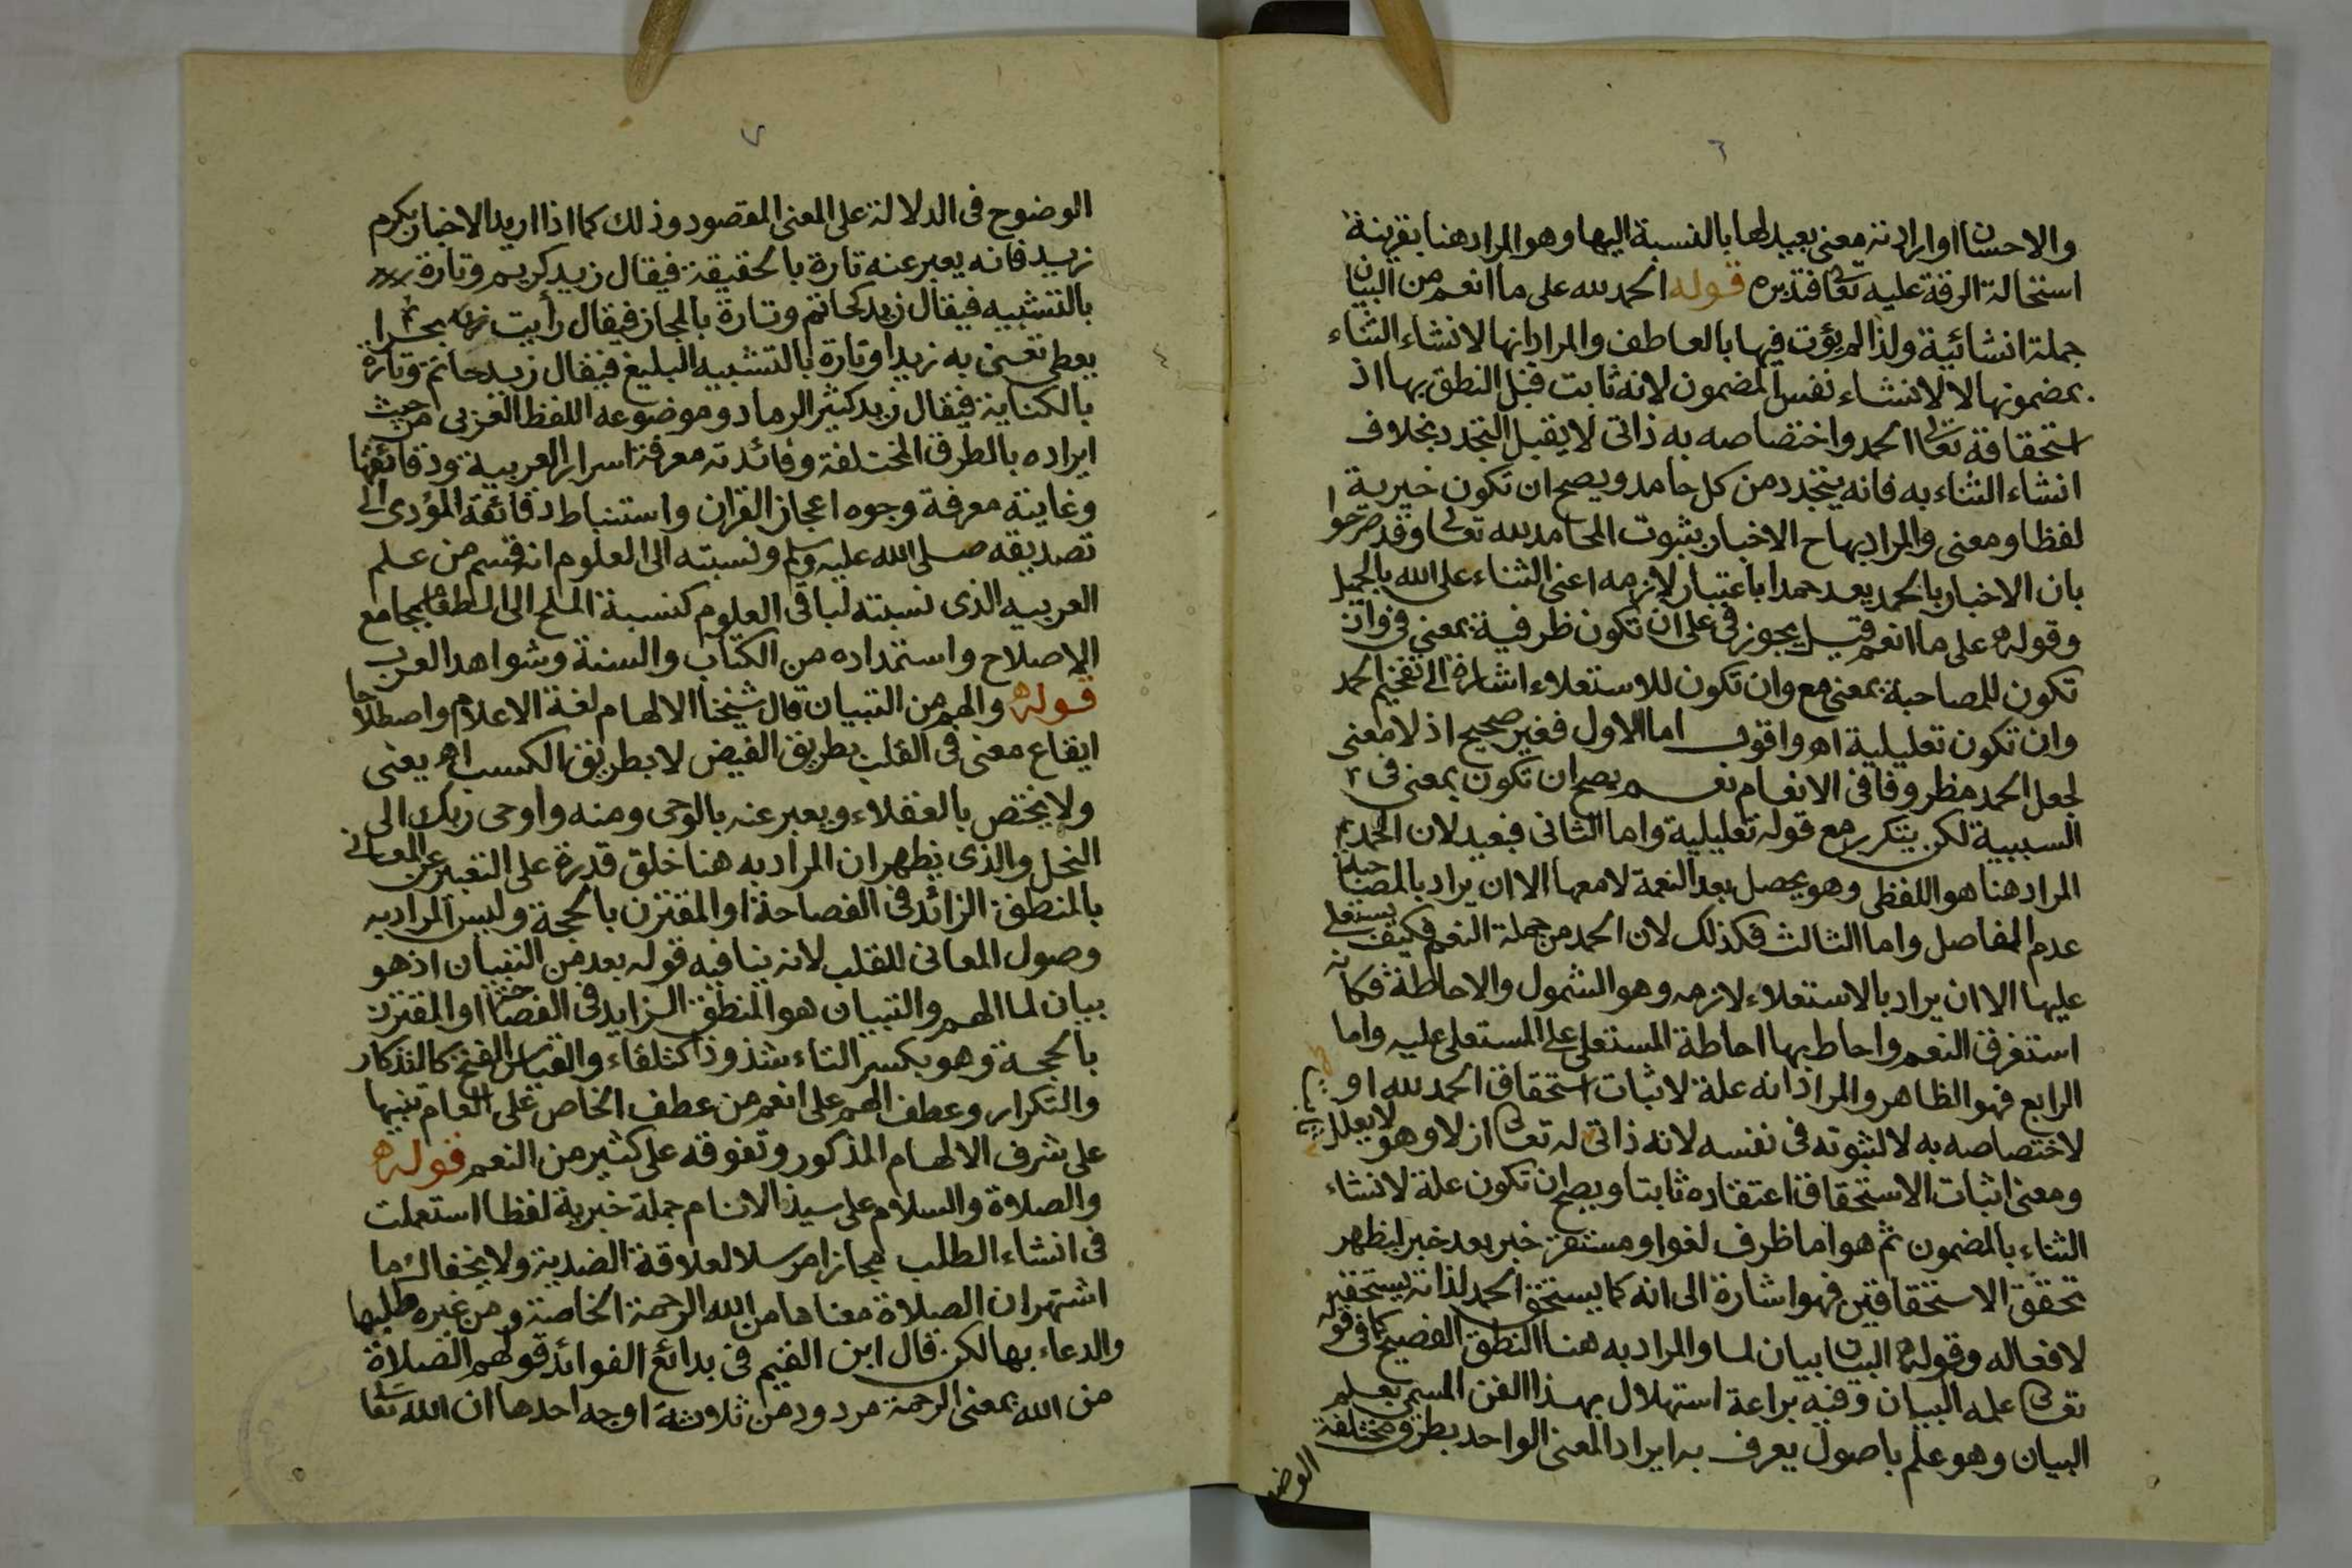 ٦
والاحسان او ارادته معنى بعيد لها بالنسبة اليها وهو المراد هنا بقرينة
استحالة الرقة عليه تعا فتدبره قوله الحمد لله على ما انعم من البيان
جملة انشائية ولذا لم يؤت فيها بالعاطف والمراد انها لانشاء الثناء
بمضمونها لا لانشاء نفس المضمون لانه ثابت قبل النطق بها اذ
استحقاقه تعالى الحمد واختصاصه به ذاتى لا يقبل التجدد بخلاف
انشاء الثناء به فانه يتجدد من كل حامد ويصح ان تكون خبرية
لفظا ومعنى والمراد بها ح الاخبار بثبوت المحامد لله تعالى وقد صرحوا
بان الاخبار بالحمد يعد حمدا باعتبار لازمه اعنى الثناء على الله بالجميل
وقوله على ما انعم قيل يجوز فى على ان تكون ظرفية بمعنى فى وان
تكون للمصاحبة بمعنى مع وان تكون للاستعلاء اشارة الى تفخيم الحمد
وان تكون تعليلية اهـ واقول اما الاول فغير صحيح اذ لا معنى
لجعل الحمد مظروفا فى الانعام نعم يصح ان تكون بمعنى فى
السببية لكن يتكرر مع قوله تعليلية واما الثانى فبعيد لان الحمد
المراد هنا هو اللفظى وهو يحصل بعد النعمة لا معها الا ان يراد بالمصاحبة
عدم المفاصل واما الثالث فكذلك لان الحمد من جملة النعم فكيف يستعلى
عليها الا ان يراد بالاستعلاء لازمه وهو الشمول والاحاطة فكانه
استغرق النعم واحاط بها احاطة المستعلى على المستعلى عليه واما
الرابع فهو الظاهر والمراد انه علة لاثبات استحقاق الحمد لله او
لاختصاصه به لا لثبوته فى نفسه لانه ذاتى له تعالى ازلا وهو لا يعلل
ومعنى اثبات الاستحقاق اعتقاده ثابتا ويصح ان تكون علة لانشاء
الثناء بالمضمون ثم هو اما ظرف لغو او مستقر خبر بعد خبر ليظهر
تحقق الاستحقاقين فهو اشارة الى انه كما يستحق الحمد لذاته يستحقه
لافعاله وقوله من البيان بيان لما والمراد به هنا النطق الفصيح كما فى قوله
تعالى علمه البيان وفيه براعة استهلال بهذا الفن المسمى بعلم
البيان وهو علم باصول يعرف به ايراد المعنى الواحد بطرق مختلفة
الوضو
٧
الوضوح فى الدلالة على المعنى المقصود وذلك كما اذا اريد الاخبار بكرم
زيد فانه يعبر عنه تارة بالحقيقة فيقال زيد كريم وتارة
بالتشبيه فيقال زيد كحاتم وتارة بالمجاز فيقال رأيت بحرا
يعطى تعنى به زيدا وتارة بالتشبيه البليغ فيقال زيد حاتم وتارة
بالكناية فيقال زيد كثير الرماد وموضوعه اللفظ العربى من حيث
ايراده بالطرق المختلفة وفائدته معرفة اسرار العربية ودقائقها
وغايته معرفة وجوه اعجاز القران واستنباط دقائقه المؤدى الى
تصديقه صلى الله عليه وسلم ونسبته الى العلوم انه قسم من علم
العربيه الذى نسبته لباقى العلوم كنسبة الملح الى الطعام بجامع
الاصلاح واستمداده من الكتاب والسنة وشواهد العرب
قوله والهم من التبيان قال شيخنا الالهام لغة الاعلام واصطلاحا
ايقاع معنى فى القلب بطريق الفيض لا بطريق الكسب اهـ يعنى
ولا يختص بالعقلاء ويعبر عنه بالوحى ومنه واوحى ربك الى
النحل والذى يظهر ان المراد به هنا خلق قدرة على التعبير عن المعانى
بالمنطق الزائد فى الفصاحة او المقترن بالحجة وليس المراد به
وصول المعانى للقلب لانه ينافيه قوله بعد من التبيان اذ هو
بيان لما الهم والتبيان هو المنطق الزايد فى الفصاحة او المقترن
بالحجة وهو بكسر التاء شذوذا كتلقاء والقياس الفتح كالتذكار
والتكرار وعطف الهم على انعم من عطف الخاص على العام تنبيها
على شرف الالهام المذكور وتفوقه على كثير من النعم قوله
والصلاة والسلام على سيد الانام جملة خبرية لفظا استعملت
فى انشاء الطلب مجازا مرسلا لعلاقة الضدية ولا يخفاك ما
اشتهر ان الصلاة معناها من الله الرحمة الخاصة ومن غيره طلبها
والدعاء بها لكن قال ابن القيم فى بدائع الفوائد قولهم الصلاة
من الله بمعنى الرحمة مردود من ثلاثة اوجه احدها ان الله تعالى